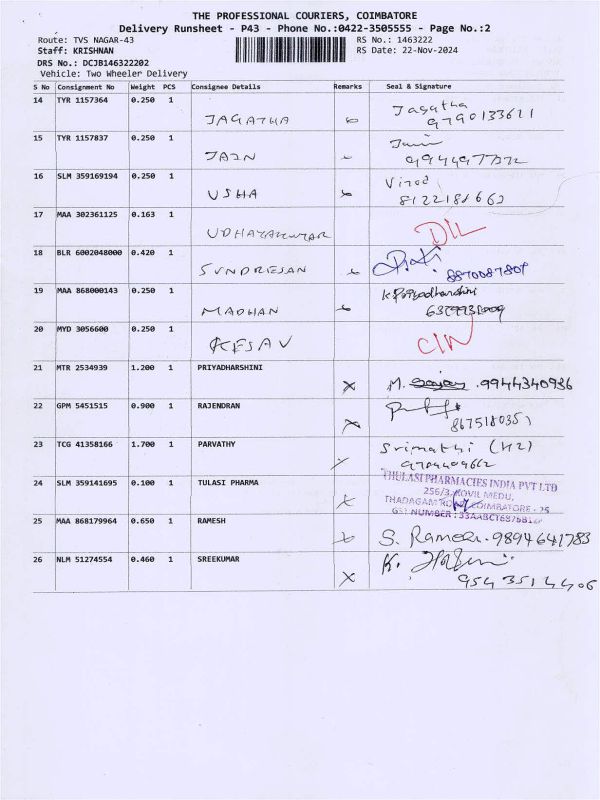 THE PROFESSIONAL COURIERS, COIMBATORE
Delivery Runsheet - P43 - Phone No.:0422-3505555 - Page No.:2
Route: TVS NAGAR-43 RS No.: 1463222
Staff: KRISHNAN RS Date: 22-Nov-2024
DRS No.: DCJB146322202
Vehicle: Two Wheeler Delivery
S No Consignment No Weight PCS Consignee Details Remarks Seal & Signature
14 TYR 1157364 0.250 1 JAGATHA Jagatha
9790133611
15 TYR 1157837 0.250 1 JAIN
16 SLM 359169194 0.250 1 USHA
17 MAA 302361125 0.163 1 UDHAYAKUMAR DIL
18 BLR 6002048000 0.420 1 SUNDRESAN
8870087807
19 MAA 868000143 0.250 1 MADHAN K Priyadharshini
20 MYD 3056600 0.250 1 KESAV CIN
21 MTR 2534939 1.200 1 PRIYADHARSHINI X M. 9944340936
22 GPM 5451515 0.900 1 RAJENDRAN X
8675180351
23 TCG 41358166 1.700 1 PARVATHY Srimathi (H2)
24 SLM 359141695 0.100 1 TULASI PHARMA X THULASI PHARMACIES INDIA PVT LTD
256/3, KOVIL MEDU,
THADAGAM ROAD, COIMBATORE - 25
GST NUMBER :
25 MAA 868179964 0.650 1 RAMESH X S. Ramesh. 9894641783
26 NLM 51274554 0.460 1 SREEKUMAR X K.
9543514406